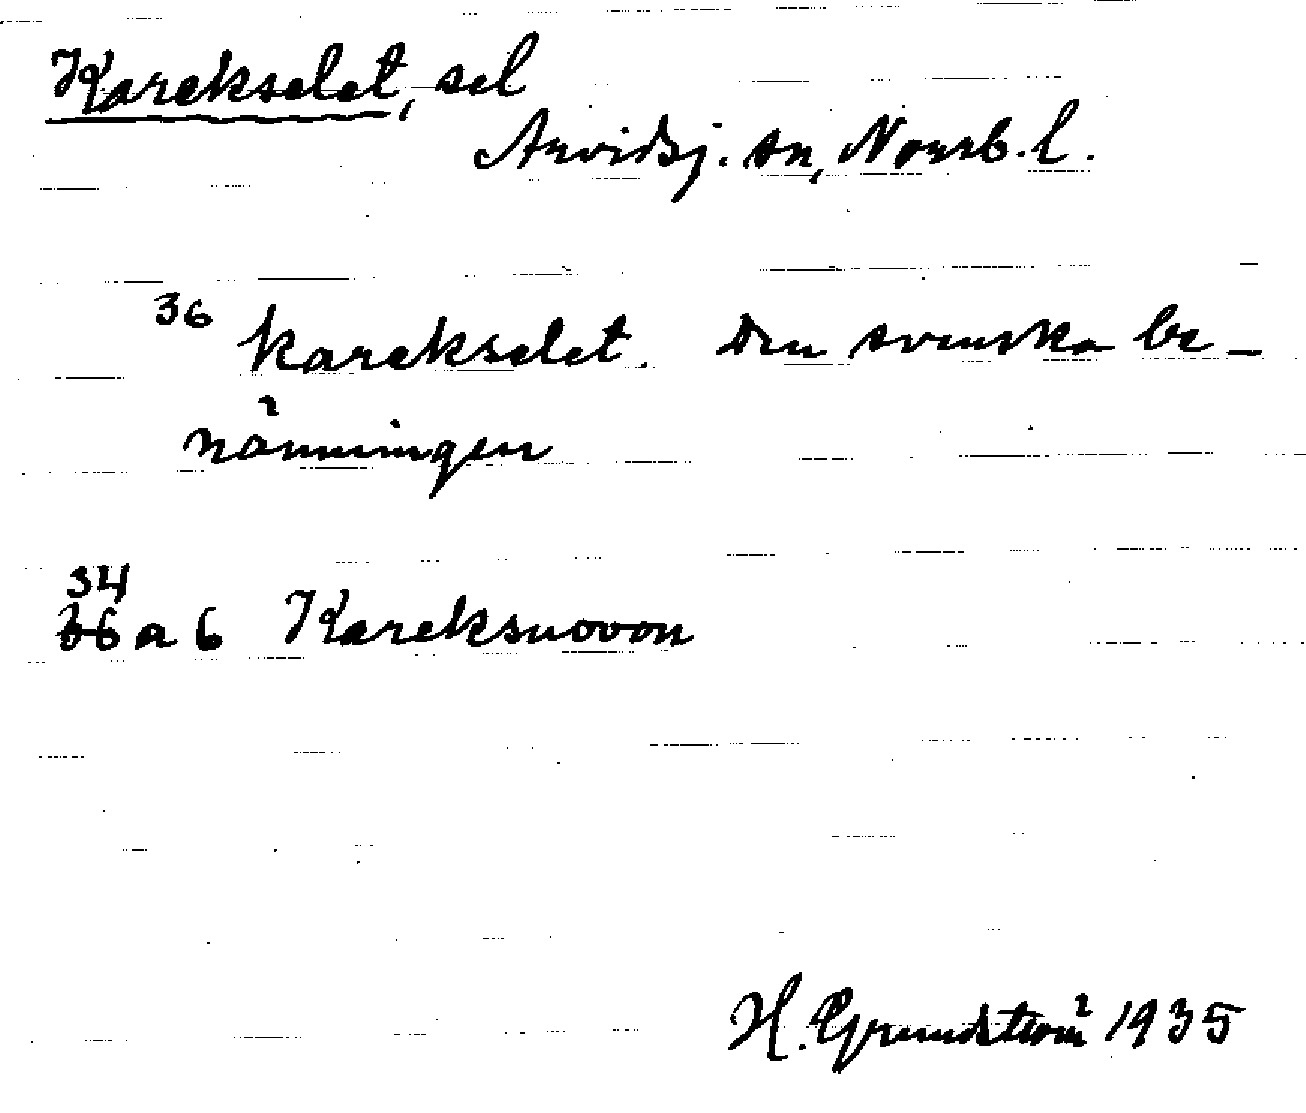 Karekselet, sel
Arvidsj. sn, Norrb. l.
36 karekselet. Den svenska be-
nänningen
34
36 a 6 Kareksuovon
H. Grundström 1935